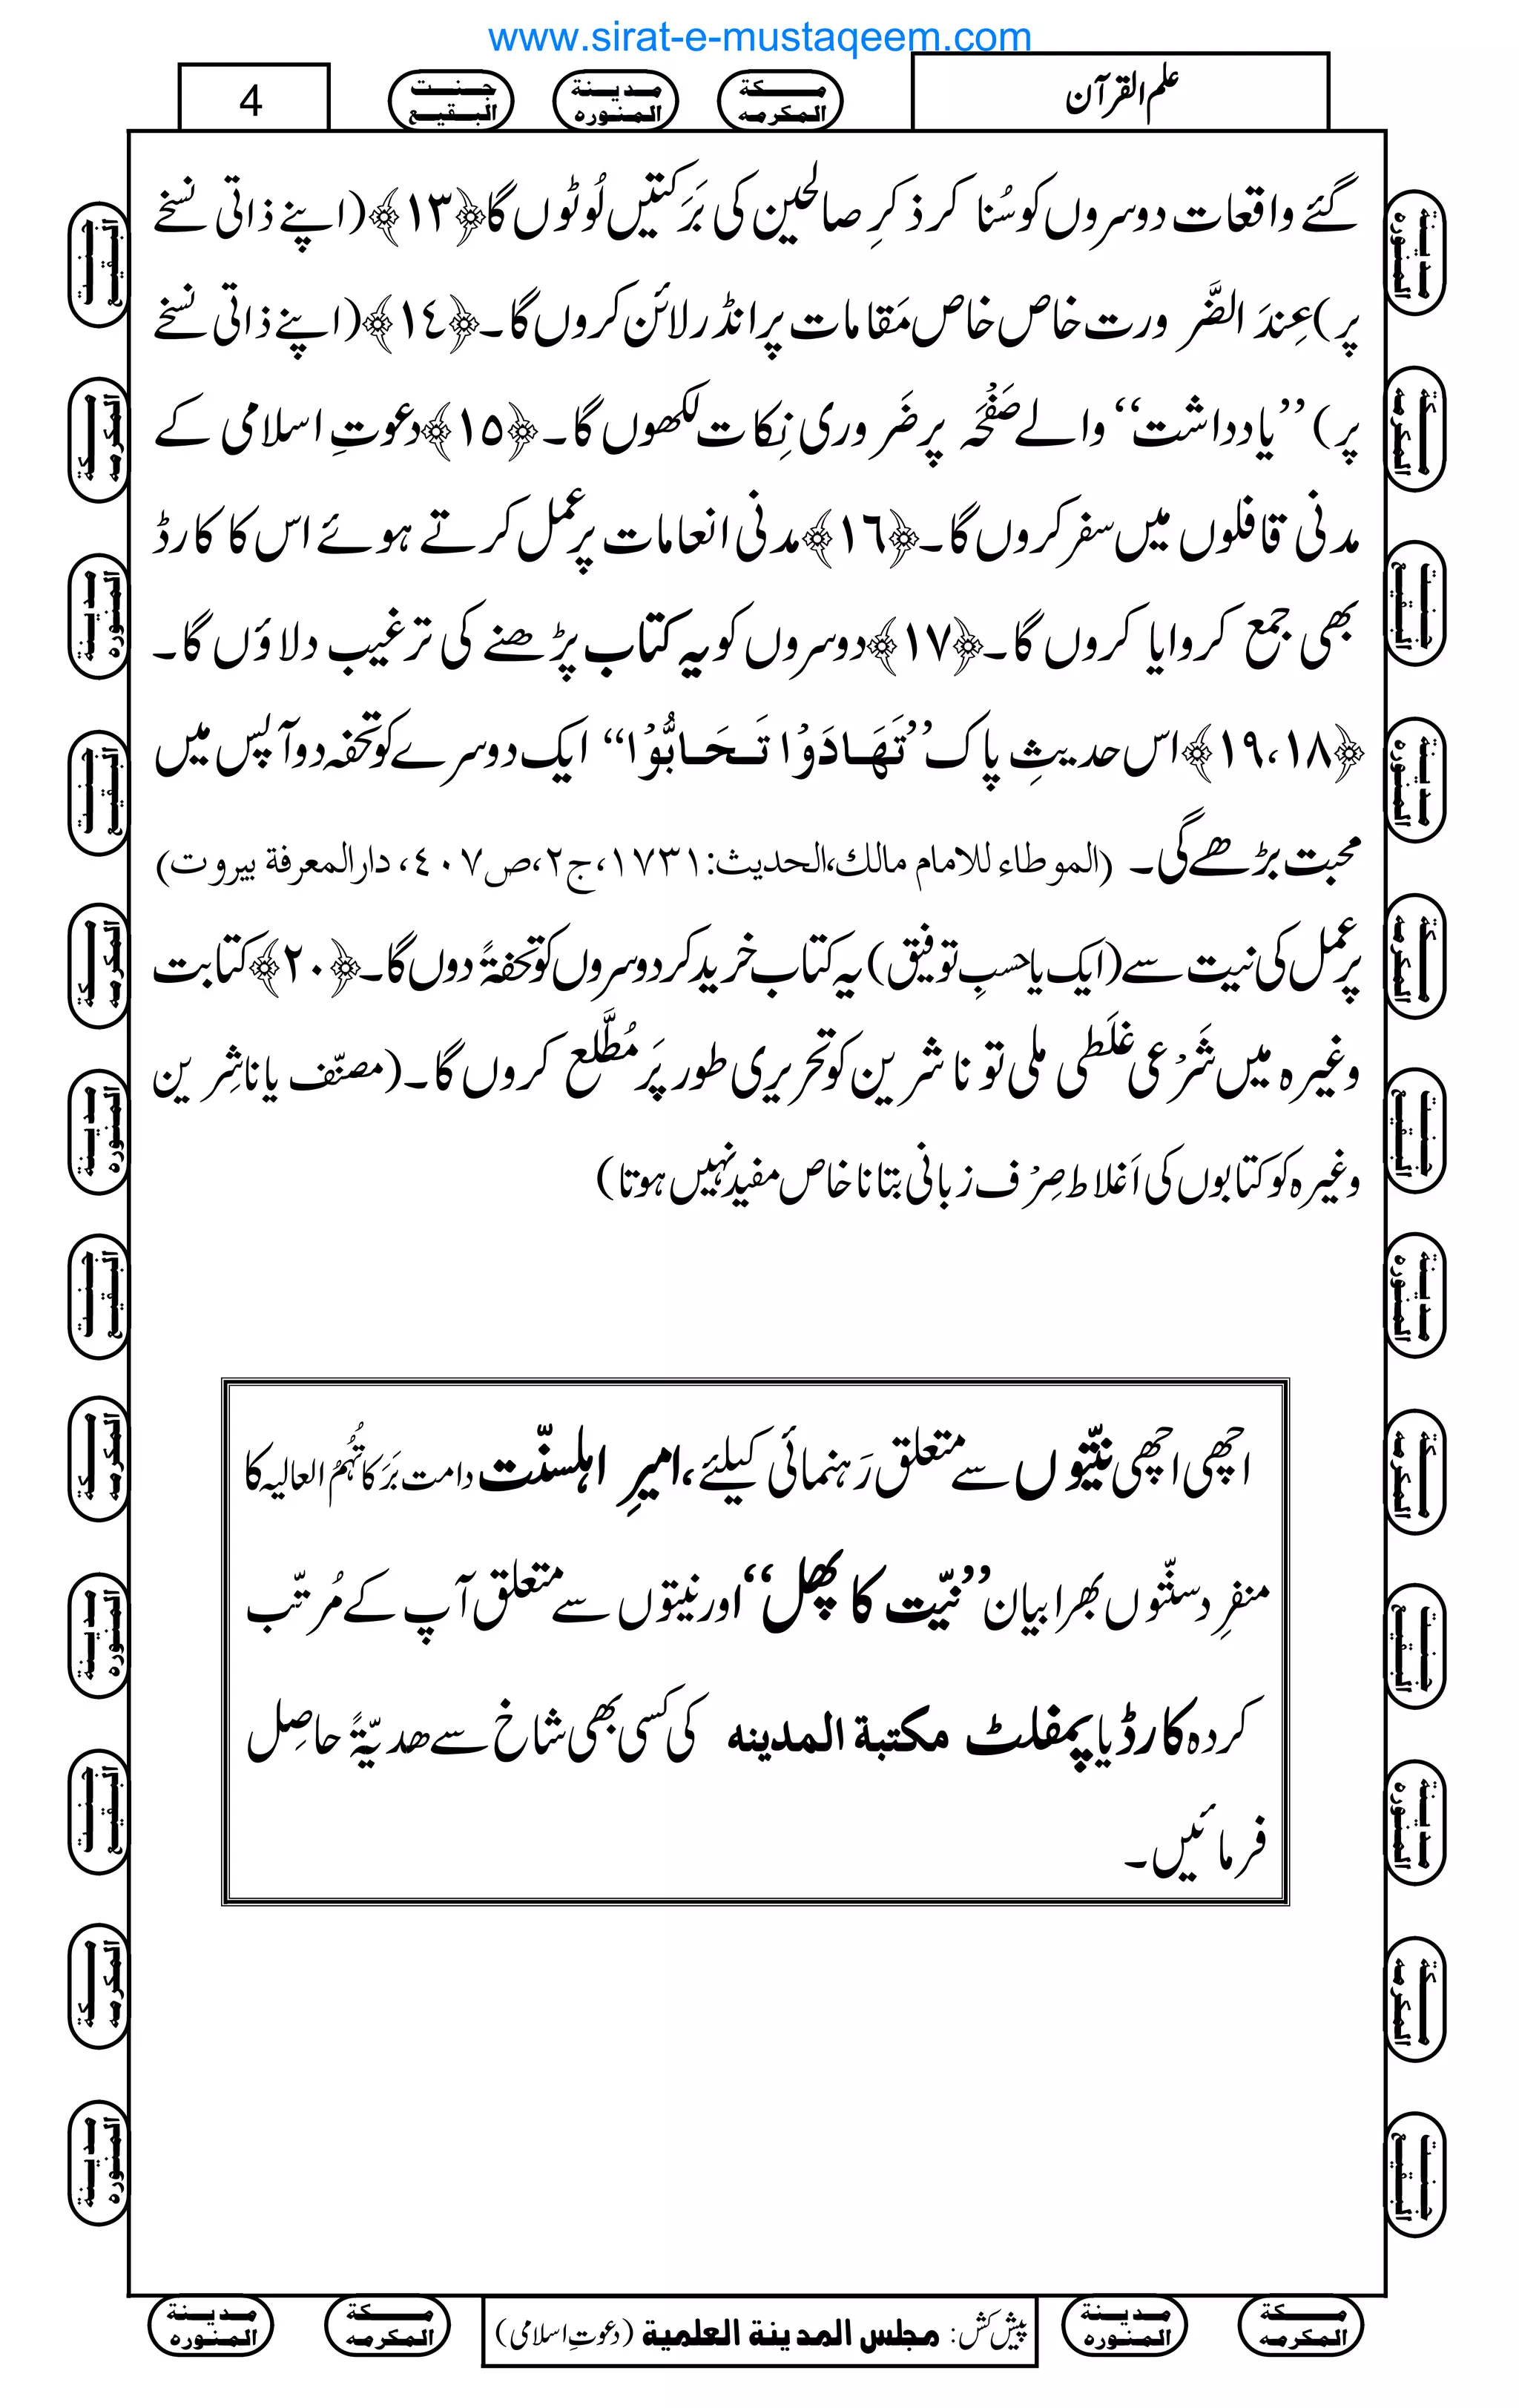 www.sirat-e-mustaqeem.com
علم القرآن
مـكة المكرمه
مدينة المنوره
جنت البقيع
4
گئے واقعات دوسروں کو سُنا کر ذکرِ صالحین کی بَرَکتیں لُوٹوں گا﴿۱۳﴾(اپنے ذاتی نسخے
پر)عِندَ الضَّرورت خاص خاص مَقامات پر انڈر لائن کروں گا۔﴿۱٤﴾(اپنے ذاتی نسخے
پر) ’’یادداشت‘‘ والے صَفْحَہ پر ضَروری نِکات لکھوں گا۔﴿۱۵﴾دعوتِ اسلامی کے
مدنی قافلوں میں سفر کروں گا۔﴿۱٦﴾مدنی انعامات پر عمل کرتے ہوئے اس کا کارڈ
بھی جمع کروایا کروں گا۔﴿۱۷﴾دوسروں کو یہ کتاب پڑھنے کی ترغیب دلاؤں گا۔
﴿۱۸،۱۹﴾اس حدیثِ پاک ’’تَهَادَوْا تَحَابُّوْا‘‘ ایک دوسرے کو تحفہ دو آپس میں
محبت بڑھے گی۔ (الموطاء للامام مالك،الحديث:۱۷۳۱،ج۲،ص٤۰۷، دارالمعرفة بيروت)
پر عمل کی نیت سے(ایک یا حسبِ توفیق)یہ کتاب خرید کر دوسروں کو تحفۃً دوں گا۔﴿۲۰﴾کتابت
وغیرہ میں شَرْعی غَلَطی ملی تو ناشرین کو تحریری طور پَر مُطَّلع کروں گا۔(مصنّف یا ناشِرین
وغیرہ کو کتابوں کی اَغلاط صِرْف زبانی بتانا خاص مفید نہیں ہوتا)
اچھی اچھی نیّتوں سے متعلق رَہنمائی کیلئے، امیرِ اہلسنّت دامت بَرَکاتُہُمُ العالیہ کا
منفرِد سنّتوں بھرا بیان ’’نیّت کا پھل‘‘ اور نیتوں سے متعلق آپ کے مُرتّب
کردہ کارڈ یا پمفلٹ مکتبۃ المدینہ کی کسی بھی شاخ سے ھدیّۃً حاصِل
فرمائیں۔
پیش کش: مجلس المدينة العلمية (دعوتِ اسلامی)
مكة المكرمه
مدينة المنوره